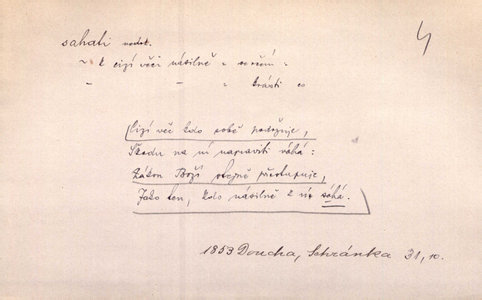 sahati nedok.
~ k cizí věci násilně = 
— — " krásti co
Cizí věc kdo sobě podržuje,
Škodu na ní napraviti váhá:
Zákon Boží stejně přestupuje,
Jako ten, kdo násilně k ní sáhá.
1853 Doucha, Schránka 31, 10.